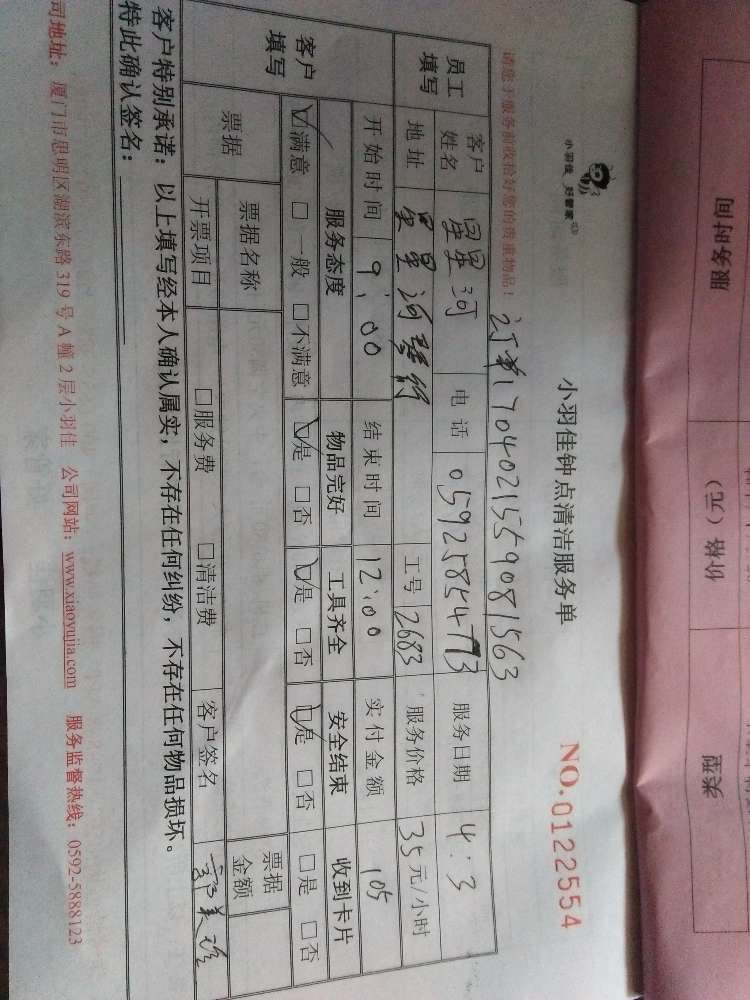 小羽佳 好管家
小羽佳钟点清洁服务单
NO.0122554
请您于服务前收拾好您的贵重物品!
订单1704021559081563
员工填写 客户姓名 星河 电话 05925854773 服务日期 4:3
地址 星河 工号 2683 服务价格 35元/小时
客户填写 开始时间 9:00 结束时间 12:00 实付金额 105
服务态度 物品完好 工具齐全 安全结束 收到卡片
☑满意 □一般 □不满意 ☑是 □否 ☑是 □否 ☑是 □否 □是 □否
票据 票据名称 票据金额
开票项目 □服务费 □清洁费 客户签名
客户特别承诺:以上填写经本人确认属实,不存在任何纠纷,不存在任何物品损坏。
特此确认签名:
司地址:厦门市思明区湖滨东路319号A幢2层小羽佳 公司网站:www.xiaoyujia.com 服务监督热线:0592-5888123
服务时间 价格(元) 类型